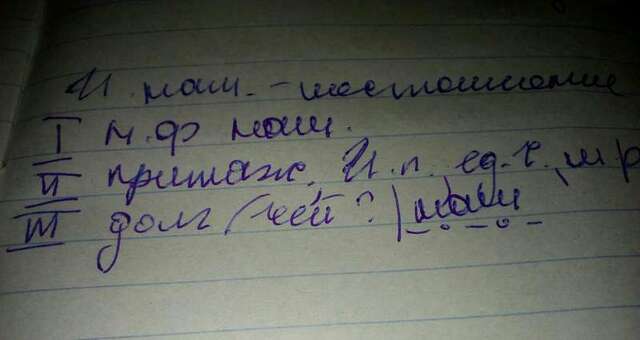 И. наш. - местоимение
I н.ф наш.
II притяж, И.п. ед.ч. м р
III долг (чей?) наш